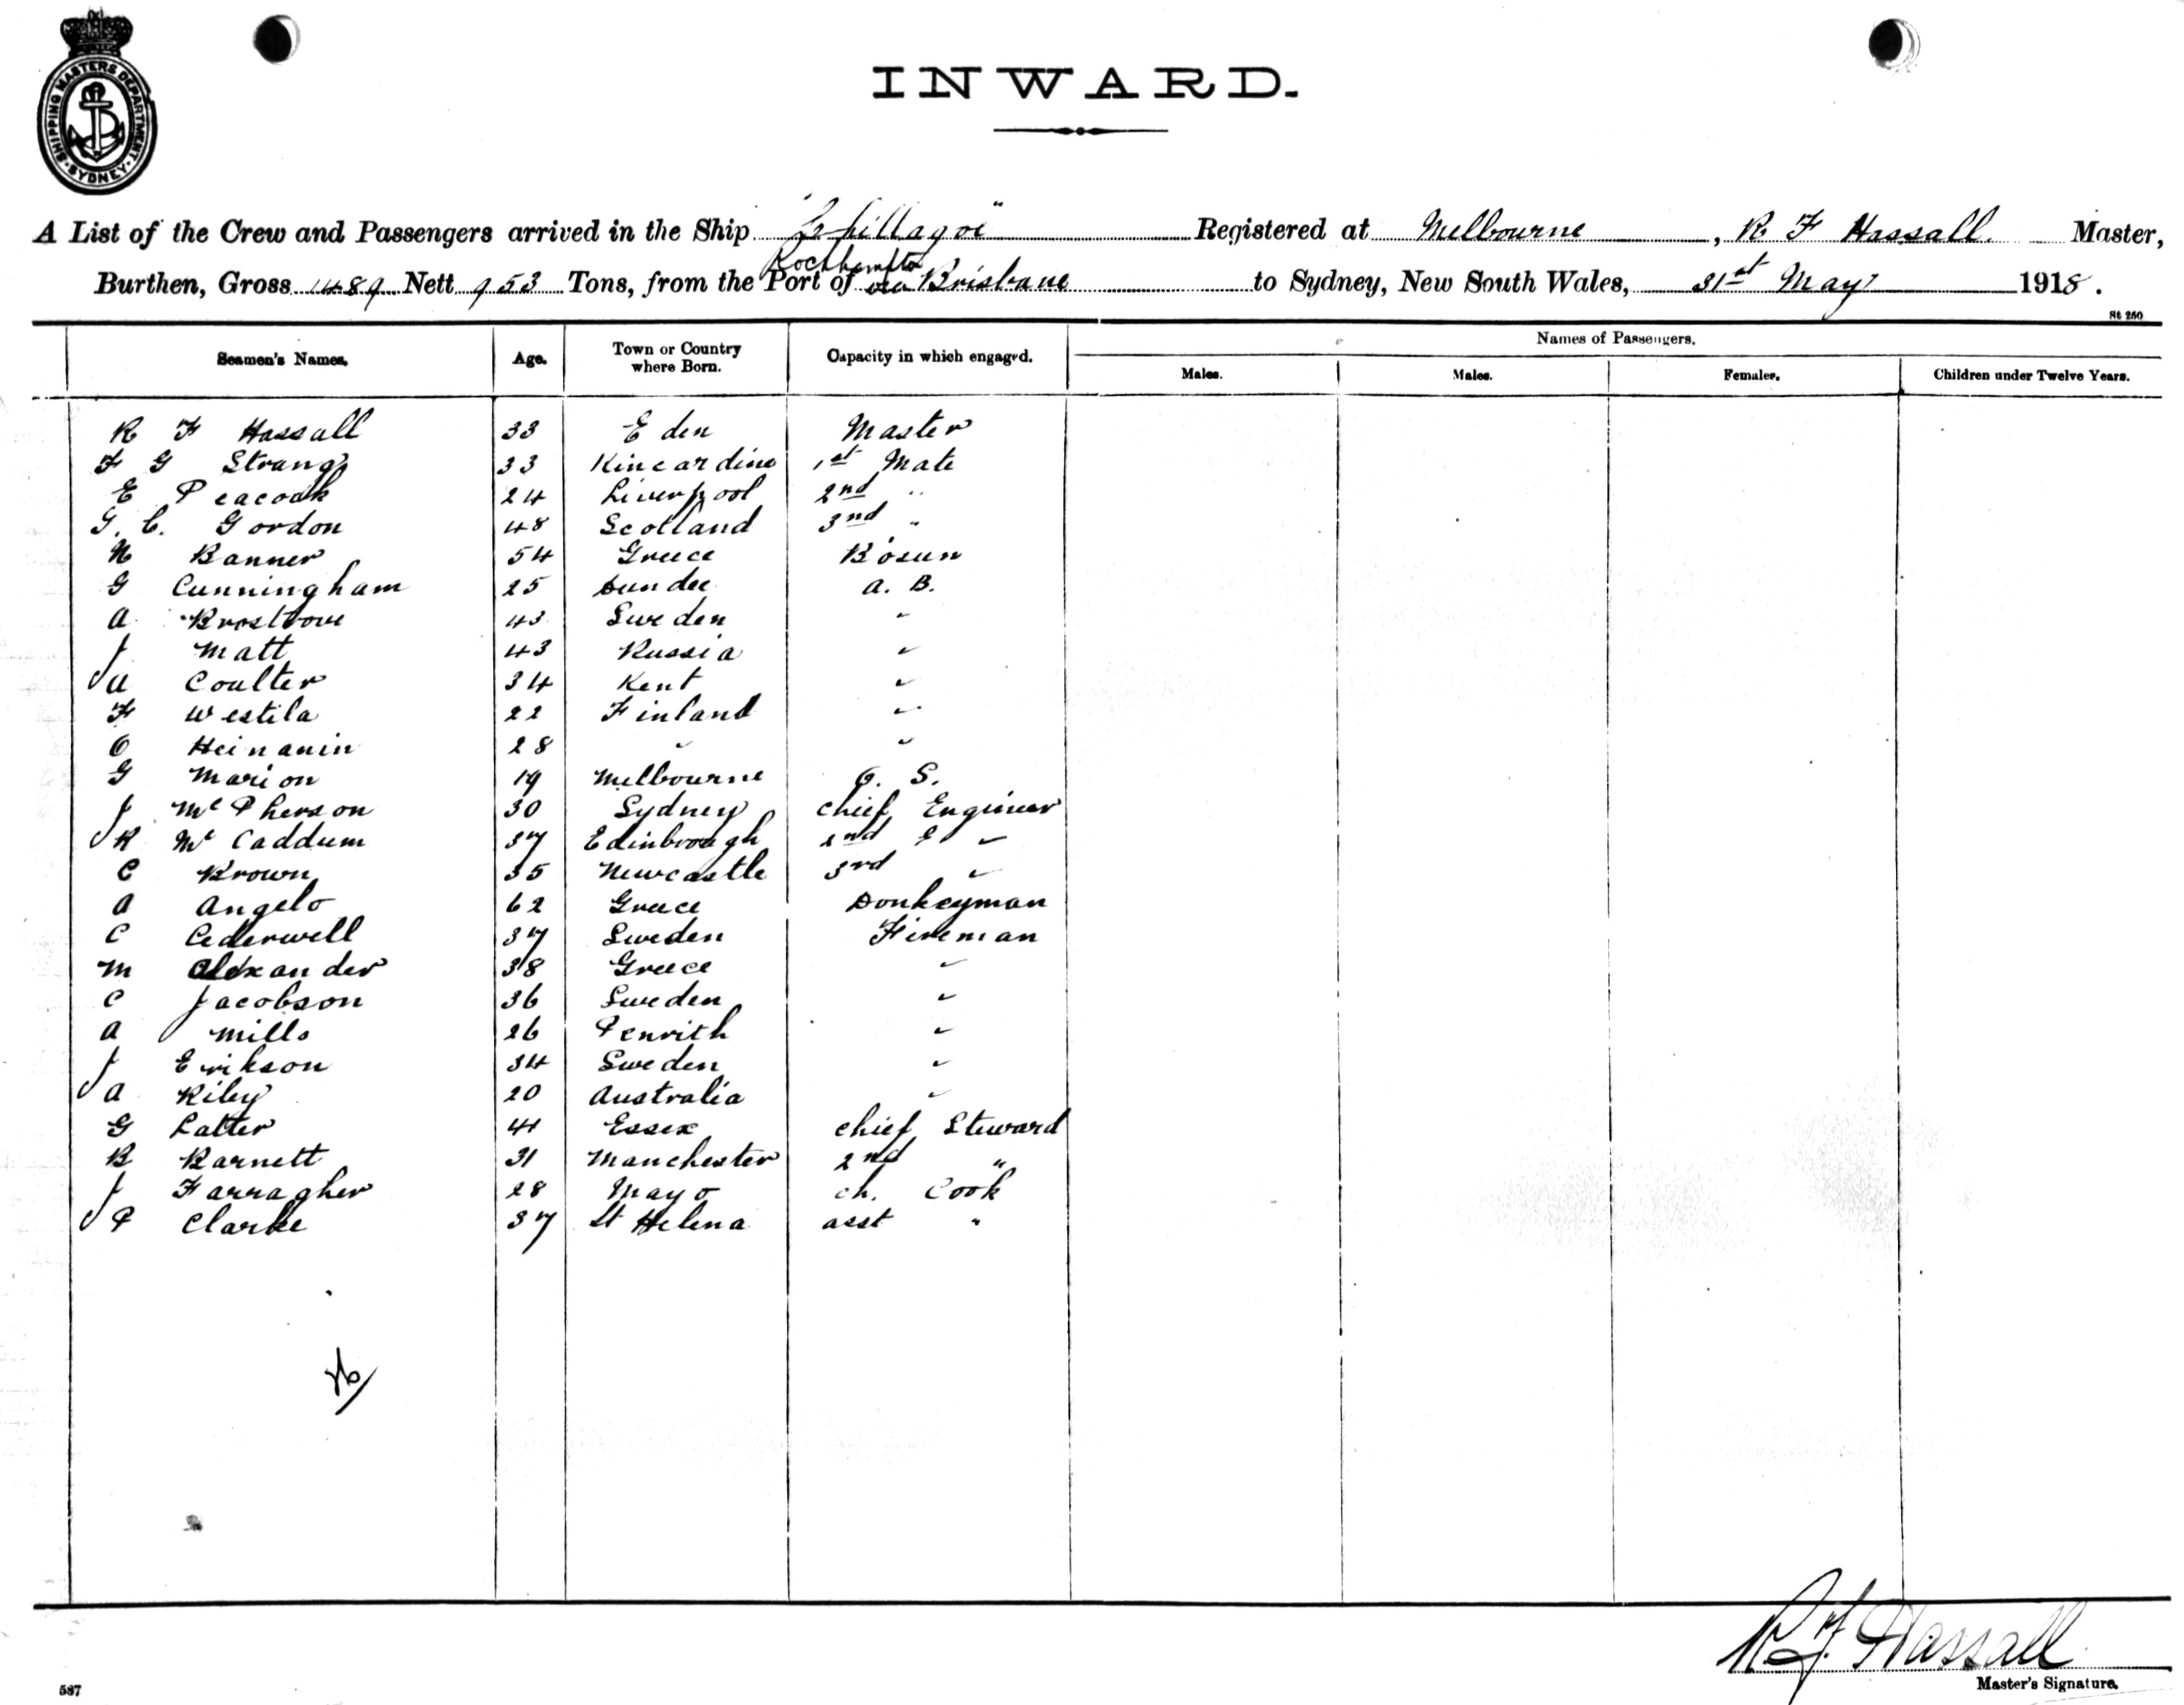 SHIPPING MASTERS DEPARTMENT SYDNEY
INWARD.
A List of the Crew and Passengers arrived in the Ship Registered at Melbourne, R F Hassall. Master,
Rockhampton
Burthen, Gross 1489 Nett 953 Tons, from the Port of via Brisbane to Sydney, New South Wales, 31st May 1918.
St 250
Seamen's Names. Age. Town or Country where Born. Capacity in which engaged. Names of Passengers.
Males. Males. Females. Children under Twelve Years.
R F Hassall 33 Eden Master
F G Strang 33 Kincardine 1st Mate
E Peacock 24 Liverpool 2nd "
G. C. Gordon 48 Scotland 3nd "
N Banner 54 Greece Bosun
G Cunningham 25 Dundee A. B.
A 43 Sweden "
J Matt 43 Russia "
W Coulter 34 Kent "
F Westila 22 Finland "
O Heinanin 28 " "
G Marion 19 Melbourne O. S.
J McPherson 30 Sydney Chief Engineer
R Mc Caddum 37 Edinbrough 2nd E "
C Brown 35 Newcastle 3rd "
A Angelo 62 Greece Donkeyman
C Cederwell 37 Sweden Fireman
M Alexander 38 Greece "
C Jacobson 36 Sweden "
A Mills 26 Penrith "
J Erikson 34 Sweden "
A Riley 20 Australia "
G Latter 41 Essex Chief Steward
B Barnett 31 Manchester 2nd "
J Farragher 28 Mayo Ch. Cook
P Clarke 37 St Helena asst "
R F. Hassall
Master's Signature.
587